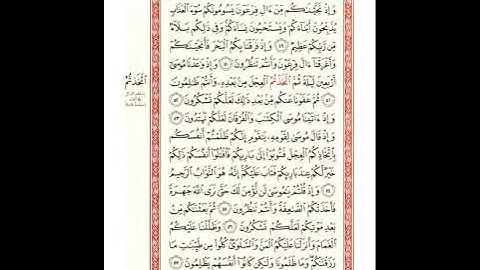 وَإِذْ نَجَّيْنَٰكُم مِّنْ ءَالِ فِرْعَوْنَ يَسُومُونَكُمْ سُوٓءَ ٱلْعَذَابِ
يُذَبِّحُونَ أَبْنَآءَكُمْ وَيَسْتَحْيُونَ نِسَآءَكُمْ وَفِى ذَٰلِكُم بَلَآءٌ
مِّن رَّبِّكُمْ عَظِيمٌ ٤٩ وَإِذْ فَرَقْنَا بِكُمُ ٱلْبَحْرَ فَأَنجَيْنَٰكُمْ
وَأَغْرَقْنَآ ءَالَ فِرْعَوْنَ وَأَنتُمْ تَنظُرُونَ ٥٠ وَإِذْ وَٰعَدْنَا مُوسَىٰٓ
أَرْبَعِينَ لَيْلَةً ثُمَّ ٱتَّخَذتُّمُ ٱلْعِجْلَ مِنۢ بَعْدِهِۦ وَأَنتُمْ ظَٰلِمُونَ
٥١ ثُمَّ عَفَوْنَا عَنكُم مِّنۢ بَعْدِ ذَٰلِكَ لَعَلَّكُمْ تَشْكُرُونَ ٥٢
وَإِذْ ءَاتَيْنَا مُوسَى ٱلْكِتَٰبَ وَٱلْفُرْقَانَ لَعَلَّكُمْ تَهْتَدُونَ ٥٣
وَإِذْ قَالَ مُوسَىٰ لِقَوْمِهِۦ يَٰقَوْمِ إِنَّكُمْ ظَلَمْتُمْ أَنفُسَكُم
بِٱتِّخَاذِكُمُ ٱلْعِجْلَ فَتُوبُوٓا۟ إِلَىٰ بَارِئِكُمْ فَٱقْتُلُوٓا۟ أَنفُسَكُمْ ذَٰلِكُمْ
خَيْرٌ لَّكُمْ عِندَ بَارِئِكُمْ فَتَابَ عَلَيْكُمْ إِنَّهُۥ هُوَ ٱلتَّوَّابُ ٱلرَّحِيمُ
٥٤ وَإِذْ قُلْتُمْ يَٰمُوسَىٰ لَن نُّؤْمِنَ لَكَ حَتَّىٰ نَرَى ٱللَّهَ جَهْرَةً
فَأَخَذَتْكُمُ ٱلصَّٰعِقَةُ وَأَنتُمْ تَنظُرُونَ ٥٥ ثُمَّ بَعَثْنَٰكُم مِّنۢ
بَعْدِ مَوْتِكُمْ لَعَلَّكُمْ تَشْكُرُونَ ٥٦ وَظَلَّلْنَا عَلَيْكُمُ
ٱلْغَمَامَ وَأَنزَلْنَا عَلَيْكُمُ ٱلْمَنَّ وَٱلسَّلْوَىٰ كُلُوا۟ مِن طَيِّبَٰتِ مَا
رَزَقْنَٰكُمْ وَمَا ظَلَمُونَا وَلَٰكِن كَانُوٓا۟ أَنفُسَهُمْ يَظْلِمُونَ ٥٧
ٱتَّخَذتُّمُ